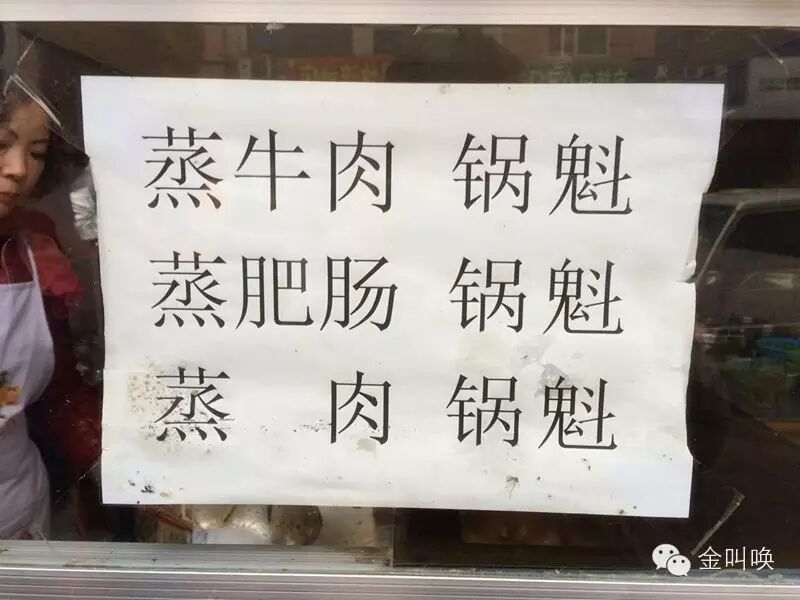 蒸牛肉 锅魁
蒸肥肠 锅魁
蒸 肉 锅魁
金叫唤